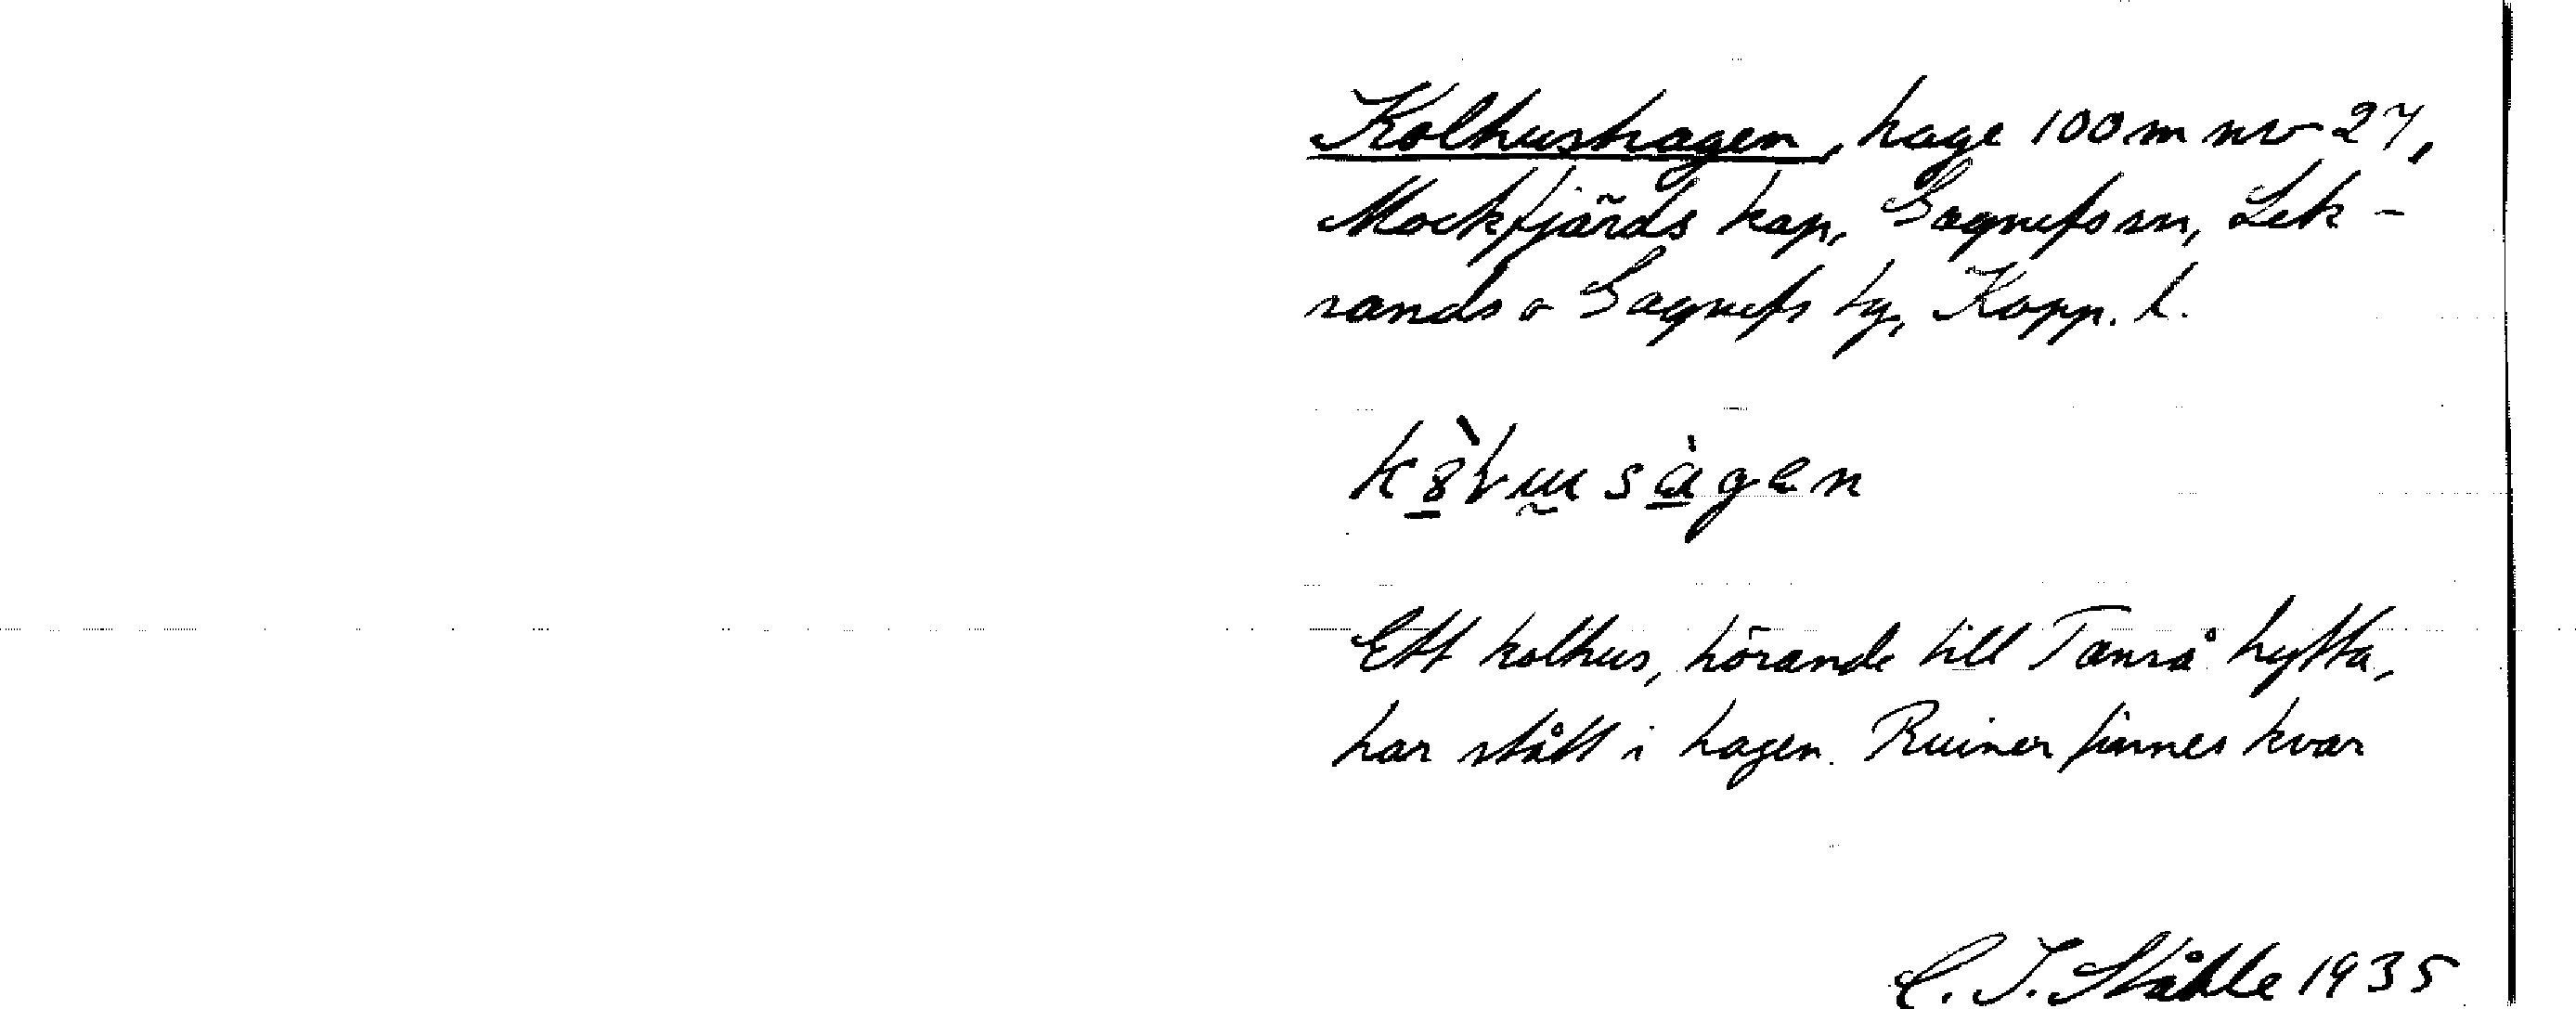 Kolhushagen, hage 100 m nv 27,
Mockfjärds kap, Gagnefs sn, Lek-
sands o Gagnefs tg, Kopp. l.
Ett kolhus, hörande till Tanså hytta,
har stått i hagen. Ruiner finnes kvar
C. I. Ståhle 1935